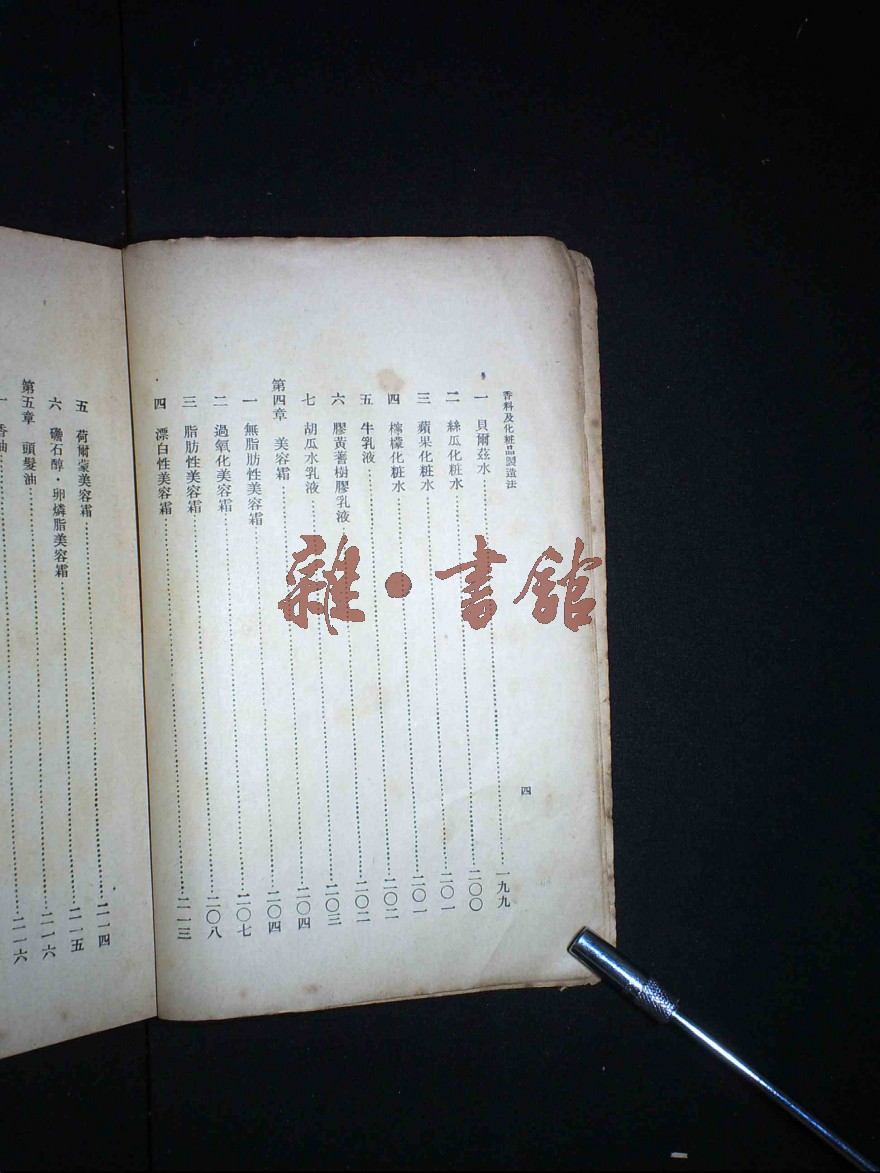 香料及化粧品製造法
四
一 貝爾茲水……一九九
二 絲瓜化粧水……二〇〇
三 蘋果化粧水……二〇一
四 檸檬化粧水……二〇一
五 牛乳液……二〇二
六 膠黃蓍樹膠乳液……二〇二
七 胡瓜水乳液……二〇三
第四章 美容霜……二〇四
一 無脂肪性美容霜……二〇四
二 過氧化美容霜……二〇七
三 脂肪性美容霜……二〇八
四 漂白性美容霜……二一三
五 荷爾蒙美容霜……二一四
六 石醇・卵燐脂美容霜……二一五
第五章 頭髮油……二一六
一 香油……二一六
雜•書館